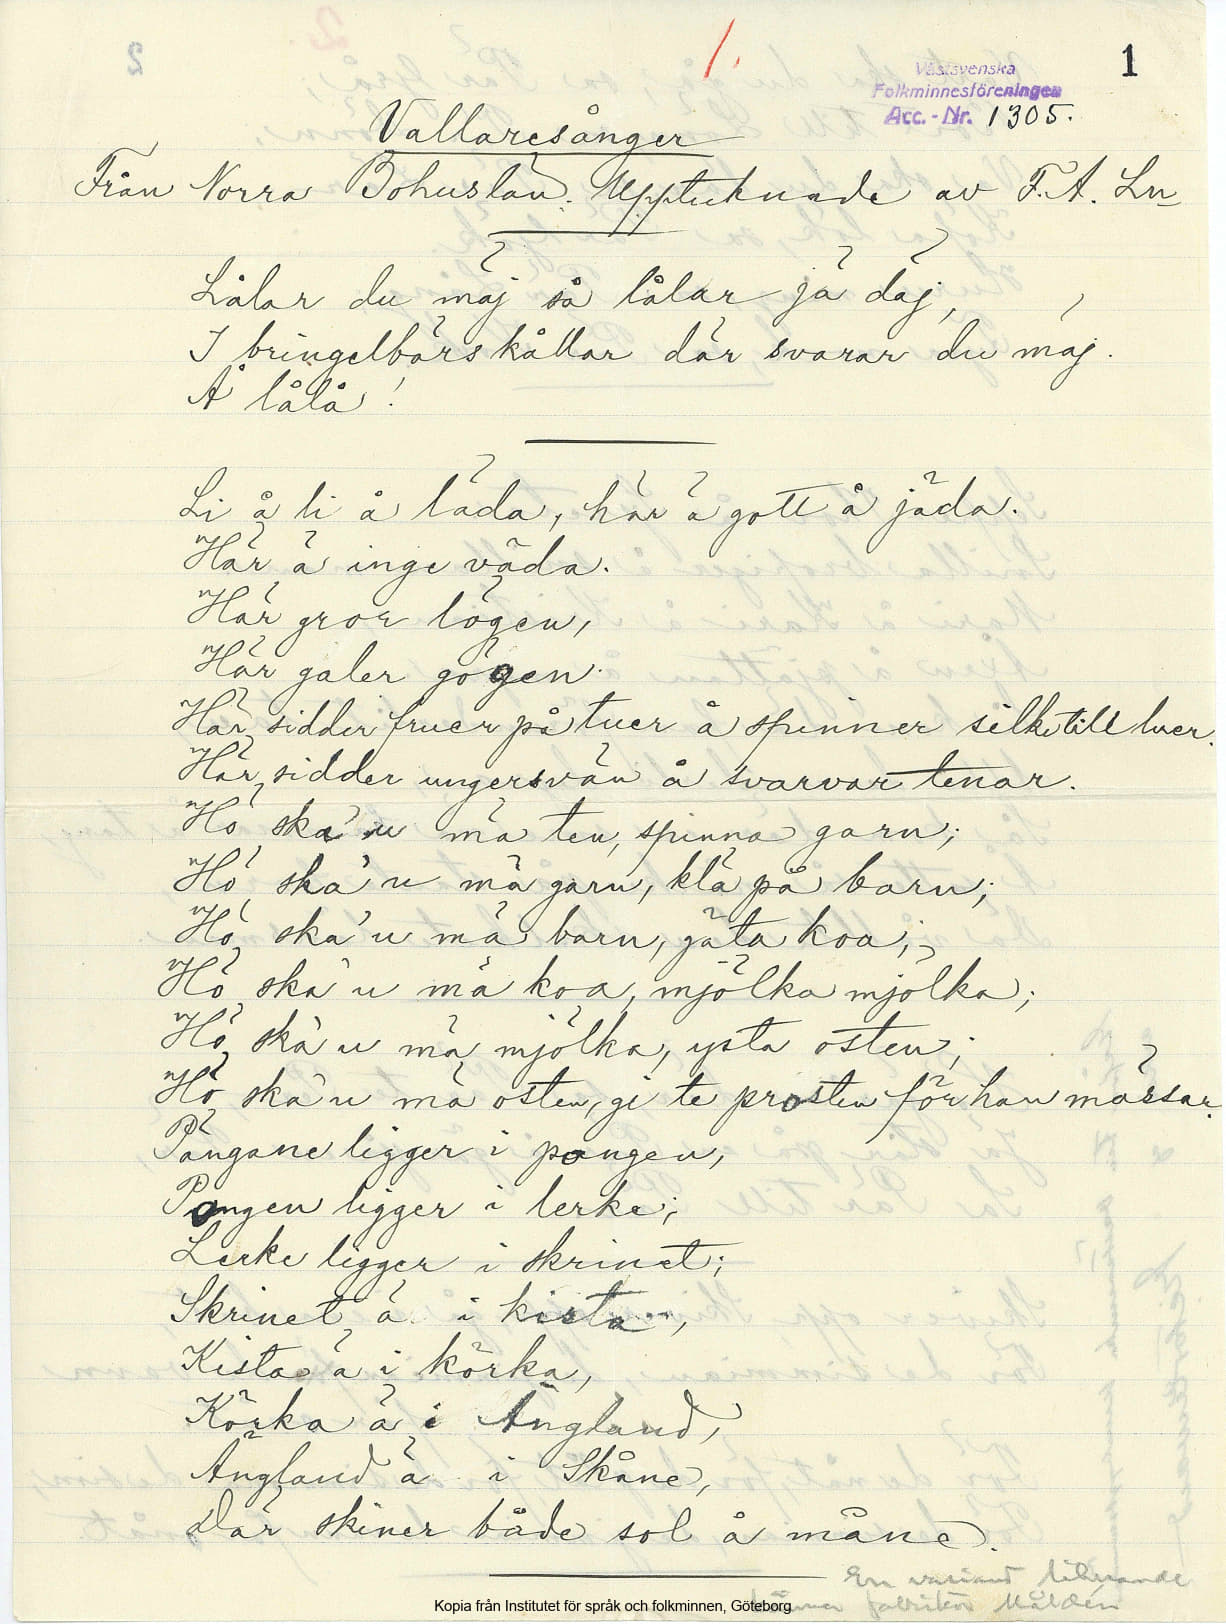 1.
1
Västsvenska
Folkminnesföreningen
Acc.-Nr. 1305.
Vallaresånger
Från Norra Bohuslän. Upptecknade av F. A. Ln
Lålar du mäj så lålar jä däj,
I bringelbärskållar där svarar du mäj.
Å lålå!
Li å li å läda, här ä gott å jäda.
Här ä inge väda.
Här gror lögen,
Här galer gögen.
Här sidder fruer på tuer å spinner silke till luer.
Här sidder ungersvän å svarvar tenar.
Hö ska u mä ten, spinna garn;
Hö ska' u mä garn, klä på barn;
Hö ska' u mä barn, gäta koa;
Hö ska u mä koa, mjölka mjölka;
Hö ska u mä mjölka, ysta osten;
Hö ska u mä osten, gi te prosten för han mässar.
Pängane ligger i pongen,
Pongen ligger i lerke;
Lerke ligger i skrinet;
Skrinet ä i kista,
Kista ä i körka,
Körka ä i Ängland,
Ängland ä i Skåne,
Där skiner både sol å måne.
En variant liknande
fabrikör Måldén
Kopia från Institutet för språk och folkminnen, Göteborg